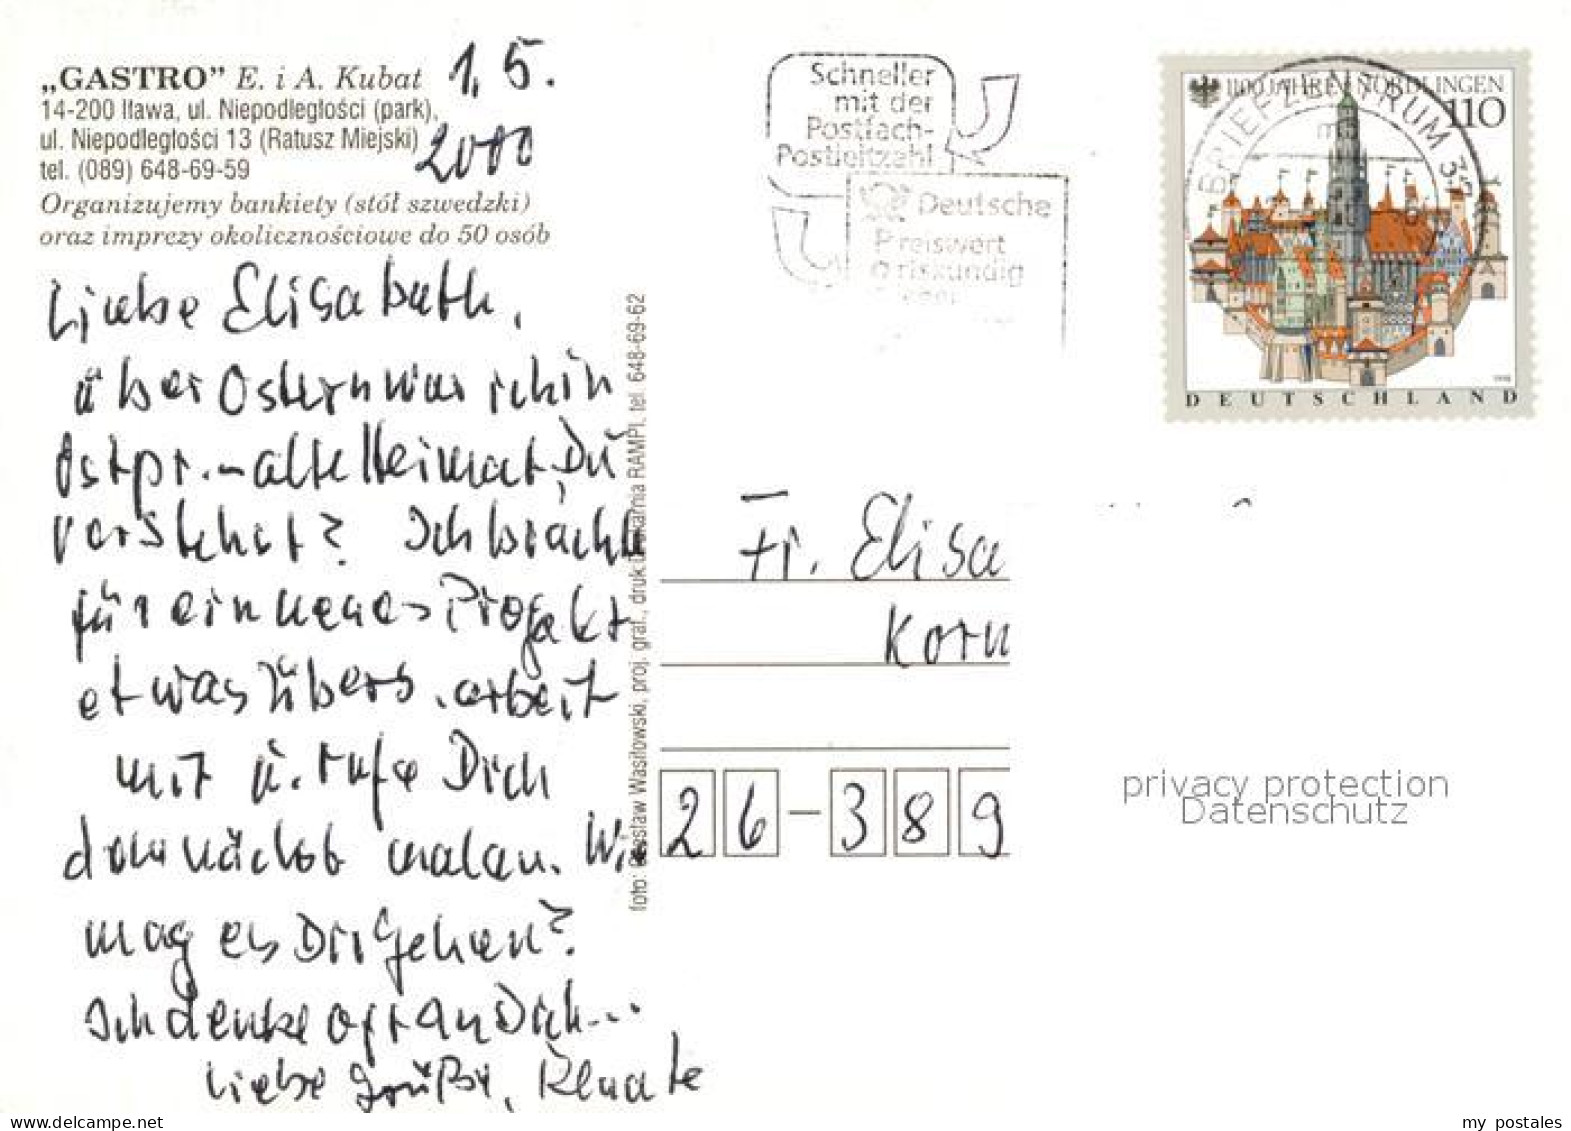 „GASTRO” E. i A. Kubat
14-200 Iława, ul. Niepodległości (park),
ul. Niepodległości 13 (Ratusz Miejski)
tel. (089) 648-69-59
Organizujemy bankiety (stół szwedzki)
oraz imprezy okolicznościowe do 50 osób
1.5.
2000
Liebe Elisabeth,
über Ostern war ich in
Ostpr. – alte Heimat, Du
verstehst? Ich brachte
für ein neues Projekt
etwas Übers.arbeit
mit u. rufe Dich
demnächst mal an. Wie
mag es Dir gehen?
Ich denke oft an Dich...
Liebe Grüße, Renate
foto: Wasiłowski, proj. graf., druk: Drukarnia RAMPI, tel. 648-69-62
Schneller
mit der
Postfach-
Postleitzahl
Deutsche
Preiswert
Ortskundig
1100 JAHRE NÖRDLINGEN
110
BRIEFZENTRUM
DEUTSCHLAND
1998
Fr. Elisa
Korn
26-389
privacy protection
Datenschutz
www.delcampe.net
my_postales